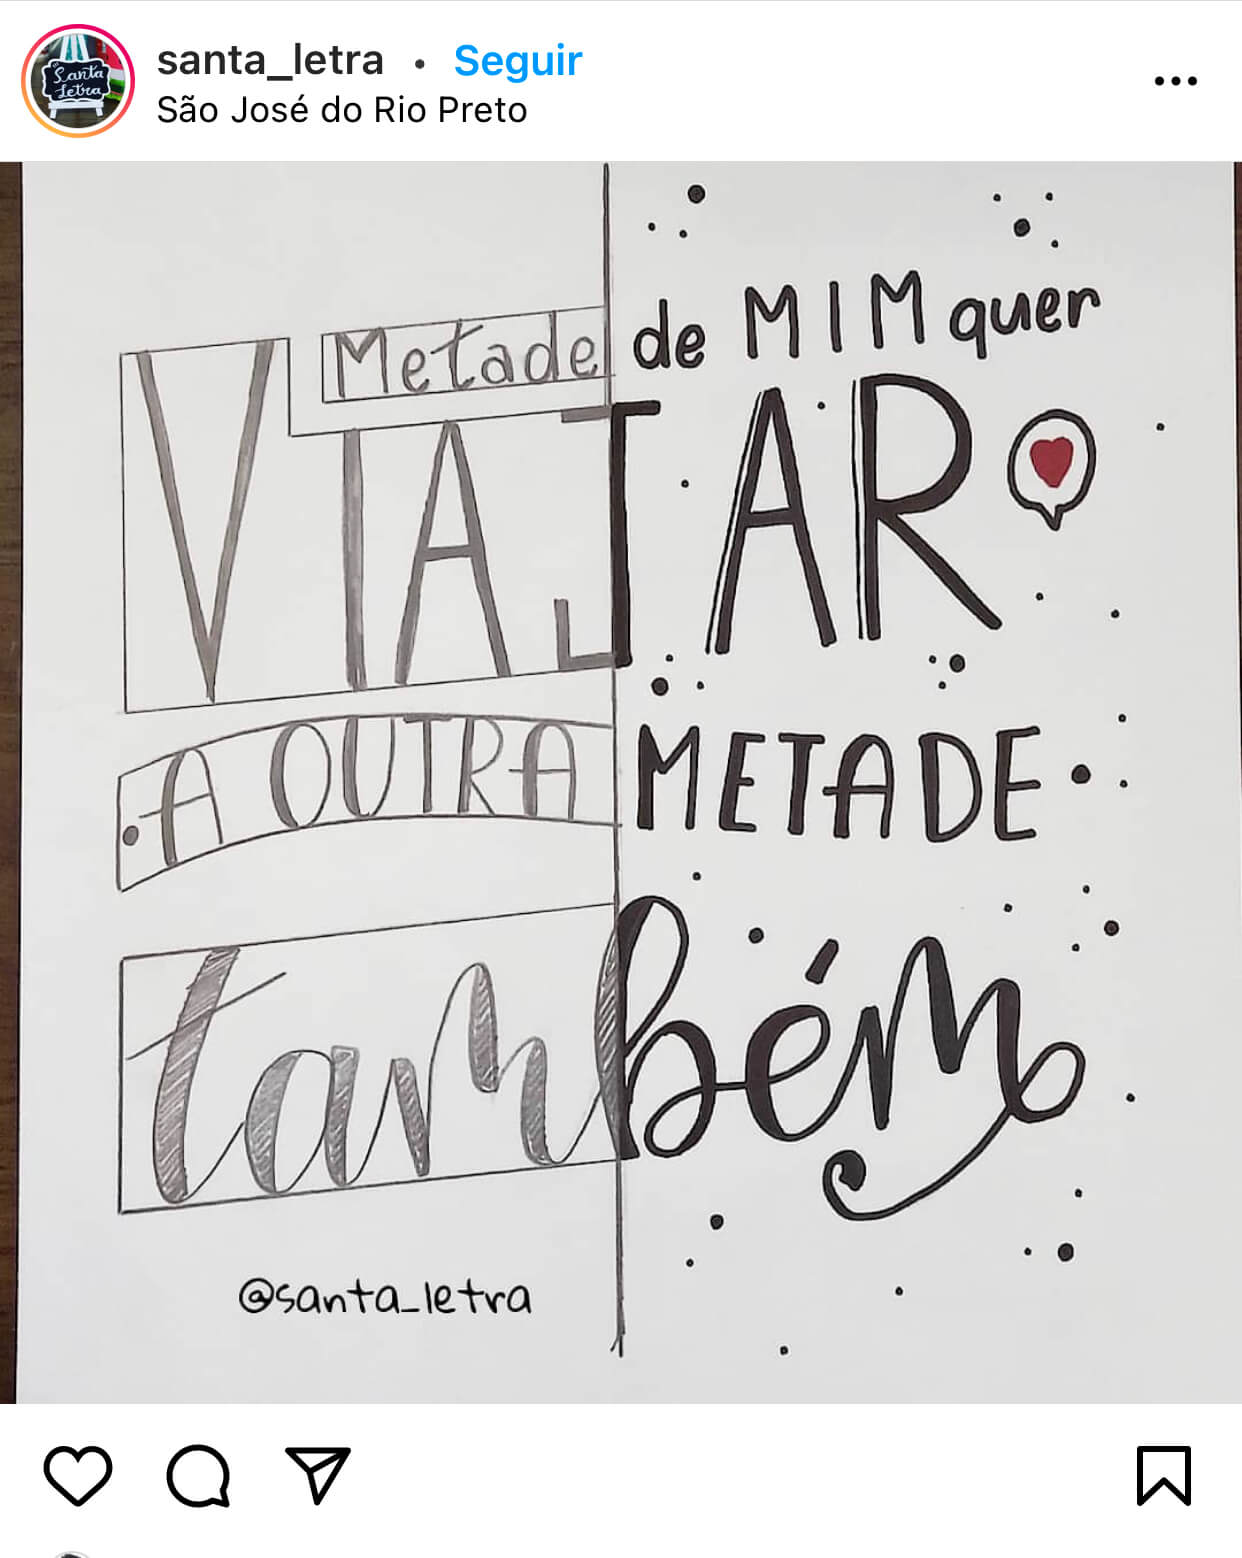 santa_letra • Seguir
São José do Rio Preto
Santa
Letra
Metade de MIM quer
VIAJAR
A OUTRA METADE
também
@santa_letra